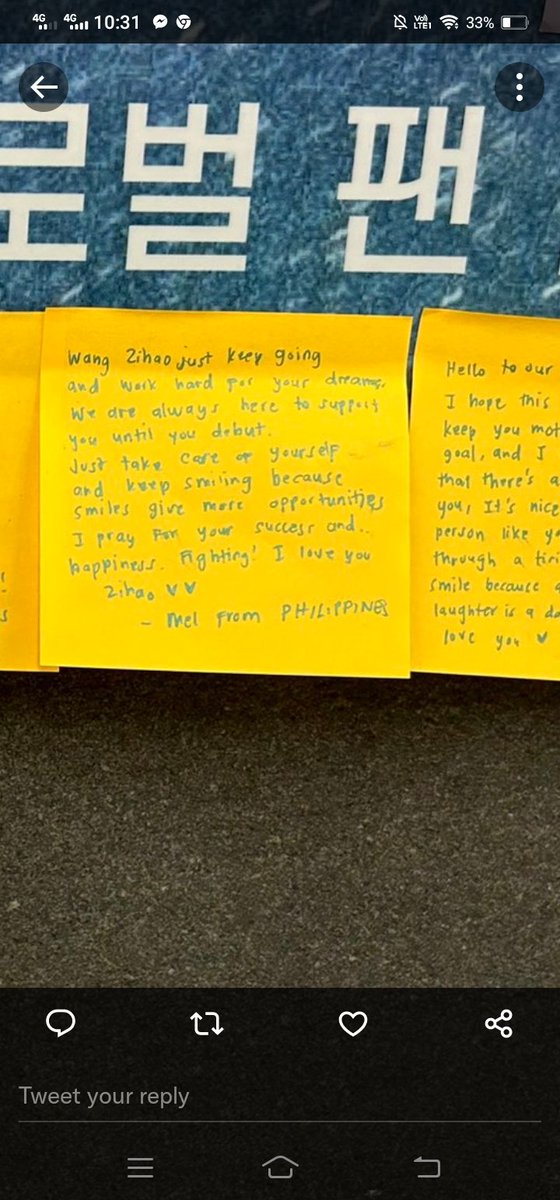 4G 4G 10:31 Vo) LTE1 33%
로벌 팬
Wang Zihao just keep going
and work hard for your dreams.
We are always here to support
you until you debut.
Just take care of yourself
and keep smiling because
smiles give more opportunities
I pray for your success and..
happiness. Fighting! I love you
Zihao
- Mel from PHILIPPINES
Hello to our
I hope this
keep you mot
goal, and I
that there's a
you, It's nice
person like yo
through a tiri
smile because a
laughter is a da
love you
Tweet your reply